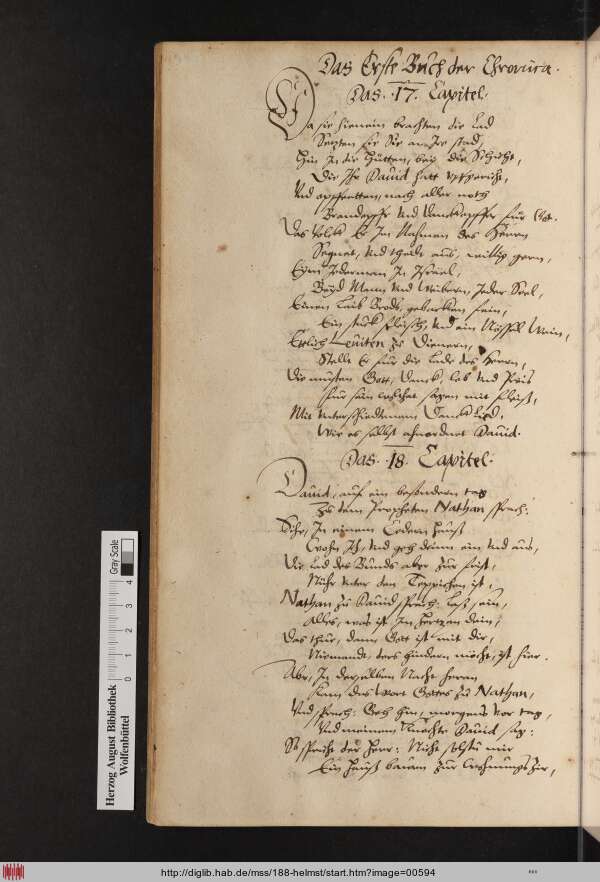 Das Erste Buch der Chronica.
Das .17. Capitel.
Da sie hienein brachten die Lad
Setzten sie Sie an Ir stad,
Hin In die Hütten, bey die Schicht,
Die Ihr Dauid hatt
Vnd opfretten, nach aller noth
Brandopffer Vnd Danckopffer für Gott.
Das Volck Er Im Nahmen des Herrn
Segnet, Vnd theilt aus, willig gern,
Eym Jederman In Israel,
Beyd Mann Vnd Weibern, Jeder Seel,
Einen Laib Brods, gebacken fein,
Ein stück fleisch, Vnd ein Nössel Wein,
Etlich Leuiten zu Dienern,
Stellt Er für die Lade des Herrn,
Die musten Gott, Danck, lob Vnd Preis
für sein wolthat sagen mit fleis,
Mit Vnterschiedtnem Danck Lied,
Wie es selbst ahnordnet Dauid.
Das .18. Capitel.
Dauid, auf ein besondern tag
Zu dem Propheten Nathan sprach:
Sihe, In einem Cedern Hauß
Wohn Ich, Vnd geh drinn ein Vnd aus,
Die Lad des Bunds aber zur frist,
Nuhr Vnter den Teppichen ist,
Nathan zu Dauid sprach: laß sein,
Alles, was ist Im Hertzen dein,
Das thue, dann Gott ist mit dir,
Niemandt, ders hindern möcht, ist hier.
Aber, In derselben Nacht heran
Kam des Wort Gottes zu Nathan,
Vnd sprach: Geh hin, morgens Vor tag,
Vnd meinem Knechte Dauid sag:
So spricht der Herr: Nicht soltu mir
Ein Hauß bauen zur Wohnungs Zir,
Herzog August Bibliothek
Wolfenbüttel
Gray Scale
0 1 2 3 4
http://diglib.hab.de/mss/188-helmst/start.htm?image=00594